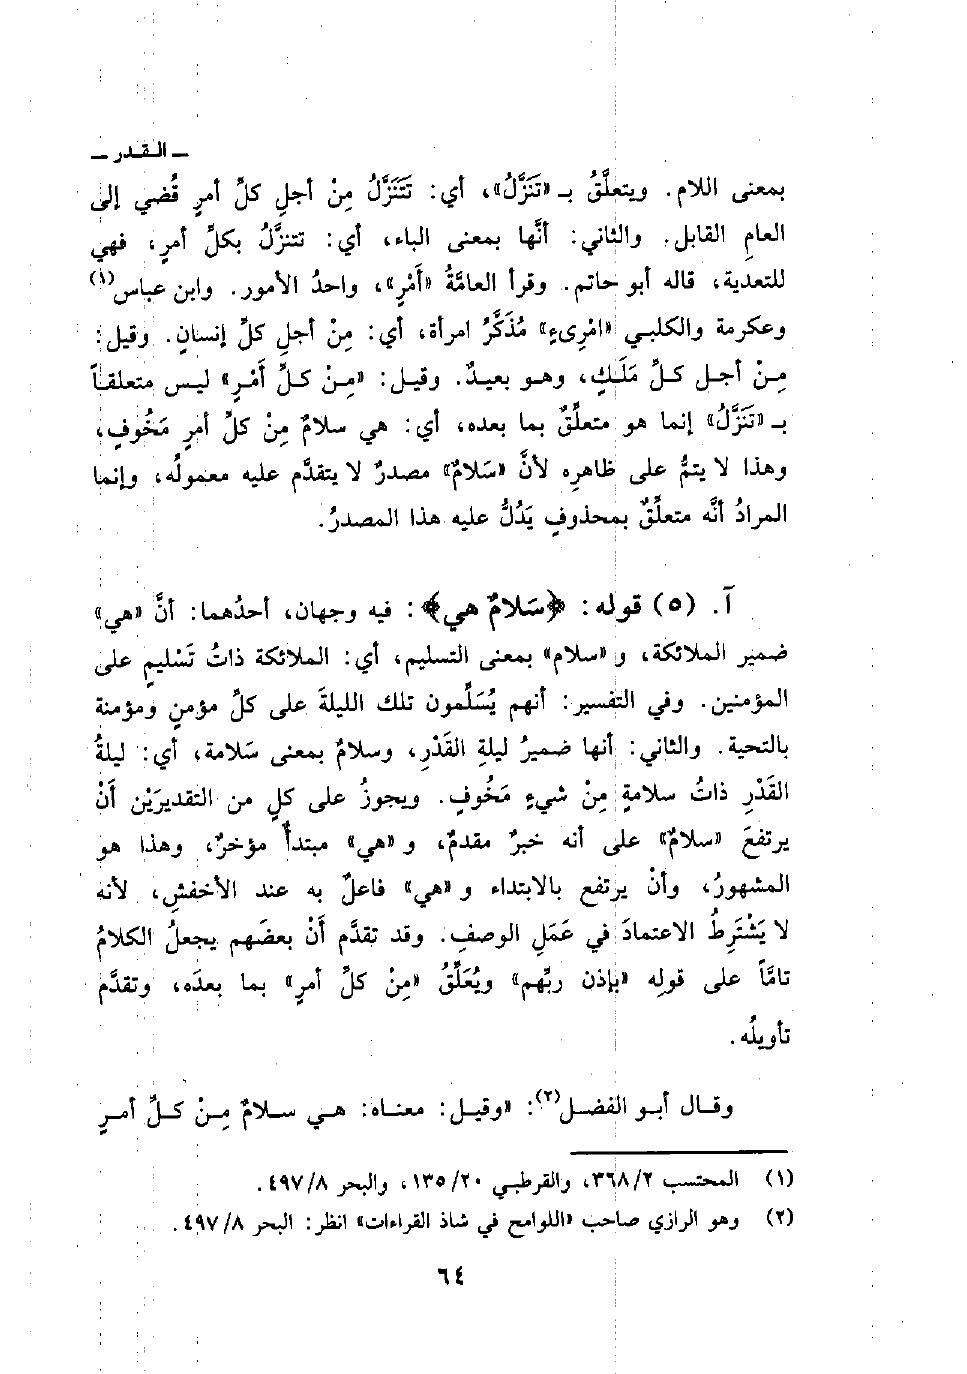 ـ القدر ـ
بمعنى اللام. ويتعلَّقُ بـ «تَنَزَّلُ»، أي: تَتَنَزَّلُ مِنْ أجلِ كلِّ أمرٍ قُضي إلى
العامِ القابل. والثاني: أنَّها بمعنى الباء، أي: تتنزَّلُ بكلِّ أمرٍ، فهي
للتعدية، قاله أبو حاتم. وقرأ العامَّةُ «أَمْرٍ»، واحدُ الأمور. وابن عباس(١)
وعكرمة والكلبي «امْرِىءٍ» مُذَكَّرُ امرأة، أي: مِنْ أجلِ كلِّ إنسانٍ. وقيل:
مِنْ أجل كلِّ مَلَكٍ، وهو بعيدٌ. وقيل: «مِنْ كلِّ أَمْرٍ» ليس متعلقاً
بـ «تَنَزَّلُ» إنما هو متعلِّقٌ بما بعده، أي: هي سلامٌ مِنْ كلِّ أمرٍ مَخُوفٍ،
وهذا لا يتمُّ على ظاهرِه لأنَّ «سَلامٌ» مصدرٌ لا يتقدَّم عليه معمولُه، وإنما
المرادُ أنَّه متعلِّقٌ بمحذوفٍ يَدُلُّ عليه هذا المصدرُ.
آ. (٥) قوله: ﴿سَلامٌ هي﴾: فيه وجهان، أحدُهما: أنَّ «هي»
ضمير الملائكة، و «سلام» بمعنى التسليم، أي: الملائكة ذاتُ تَسْليمٍ على
المؤمنين. وفي التفسير: أنهم يُسَلِّمون تلك الليلةَ على كلِّ مؤمنٍ ومؤمنة
بالتحية. والثاني: أنها ضميرُ ليلةِ القَدْرِ، وسلامٌ بمعنى سَلامة، أي: ليلةُ
القَدْرِ ذاتُ سلامةٍ مِنْ شيءٍ مَخُوفٍ. ويجوزُ على كلٍ من التقديرَيْن أَنْ
يرتفعَ «سلامٌ» على أنه خبرٌ مقدمٌ، و «هي» مبتدأٌ مؤخرٌ، وهذا هو
المشهورُ، وأنْ يرتفع بالابتداء و «هي» فاعلٌ به عند الأخفشِ، لأنه
لا يَشْتَرِطُ الاعتمادَ في عَمَلِ الوصفِ. وقد تقدَّم أَنْ بعضَهم يجعلُ الكلامُ
تامَّاً على قولِه «بإذن ربِّهم» ويُعَلِّقُ «مِنْ كلِّ أمرٍ» بما بعدَه، وتقدَّم
تأويلُه.
وقال أبو الفضل(٢): «وقيل: معناه: هي سلامٌ مِنْ كلِّ أمرٍ
(١) المحتسب ٣٦٨/٢، والقرطبي ١٣٥/٢٠، والبحر ٤٩٧/٨.
(٢) وهو الرازي صاحب «اللوامح في شاذ القراءات» انظر: البحر ٤٩٧/٨.
٦٤